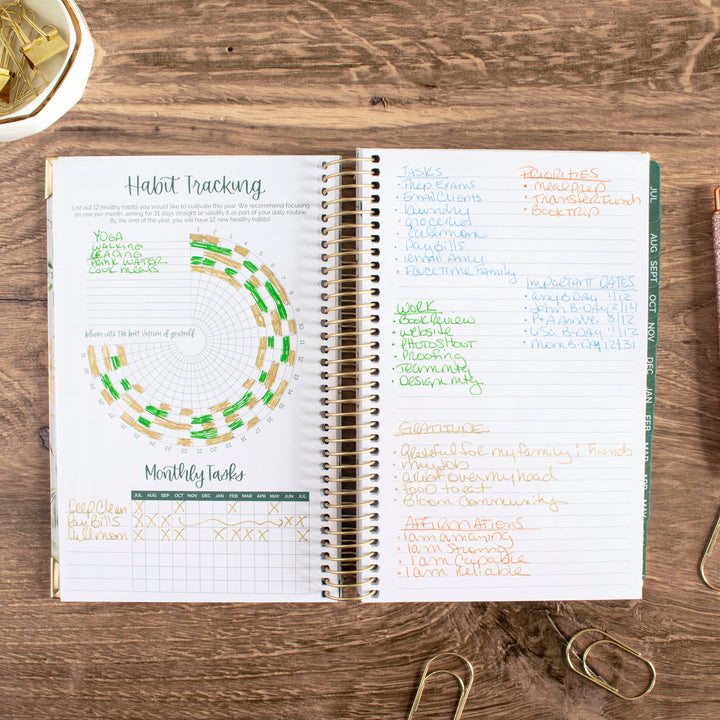 Habit Tracking
List out 12 healthy habits you would like to cultivate this year. We recommend focusing
on one per month, aiming for 31 days straight to solidify it as part of your daily routine.
By the end of the year, you will have 12 new healthy habits!
YOGA
WALKING
READING
DRINK WATER
COOK MEALS
bloom into the best version of yourself
1
2
3
4
5
6
7
8
9
10
11
12
13
14
15
16
17
18
19
20
21
22
23
24
25
26
27
28
29
30
31
Monthly Tasks
JUL AUG SEP OCT NOV DEC JAN FEB MAR APR MAY JUN JUL
Deep Clean X X X X
Pay Bills X X X X X X
Call mom X X X X X X X
TASKS
• Prep Exams
• Email Clients
• laundry
• groceries
• Call mom
• Pay Bills
• email Amy
• FaceTime Family
PRIORITIES
• meal prep
• Transfer Funds
• Book TRIP
IMPORTANT DATES
• Amy B-DAY 1/12
• John's B-DAY 2/14
• USA B-DAY
• Mom B-DAY 12/31
WORK
• Book Review
• website
• PHOTOSHOOT
• Proofing
• Team mtg
• Design mtg
GRATITUDE
• grateful for my family & friends
• my job
• a roof over my head
• food to eat
• Bloom Community
AFFIRMATIONS
• I am amazing
• I am Strong
• I am Capable
• I am Reliable
JUL
AUG
SEPT
OCT
NOV
DEC
JAN
FEB
MAR
APR
MAY